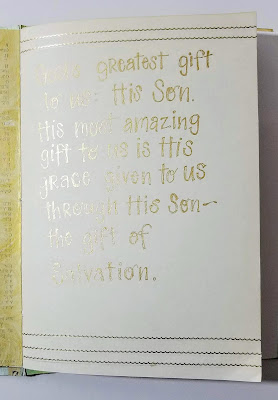 greatest gift
to us: His Son.
His most amazing
gift to us is His
grace given to us
through His Son—
the gift of
Salvation.